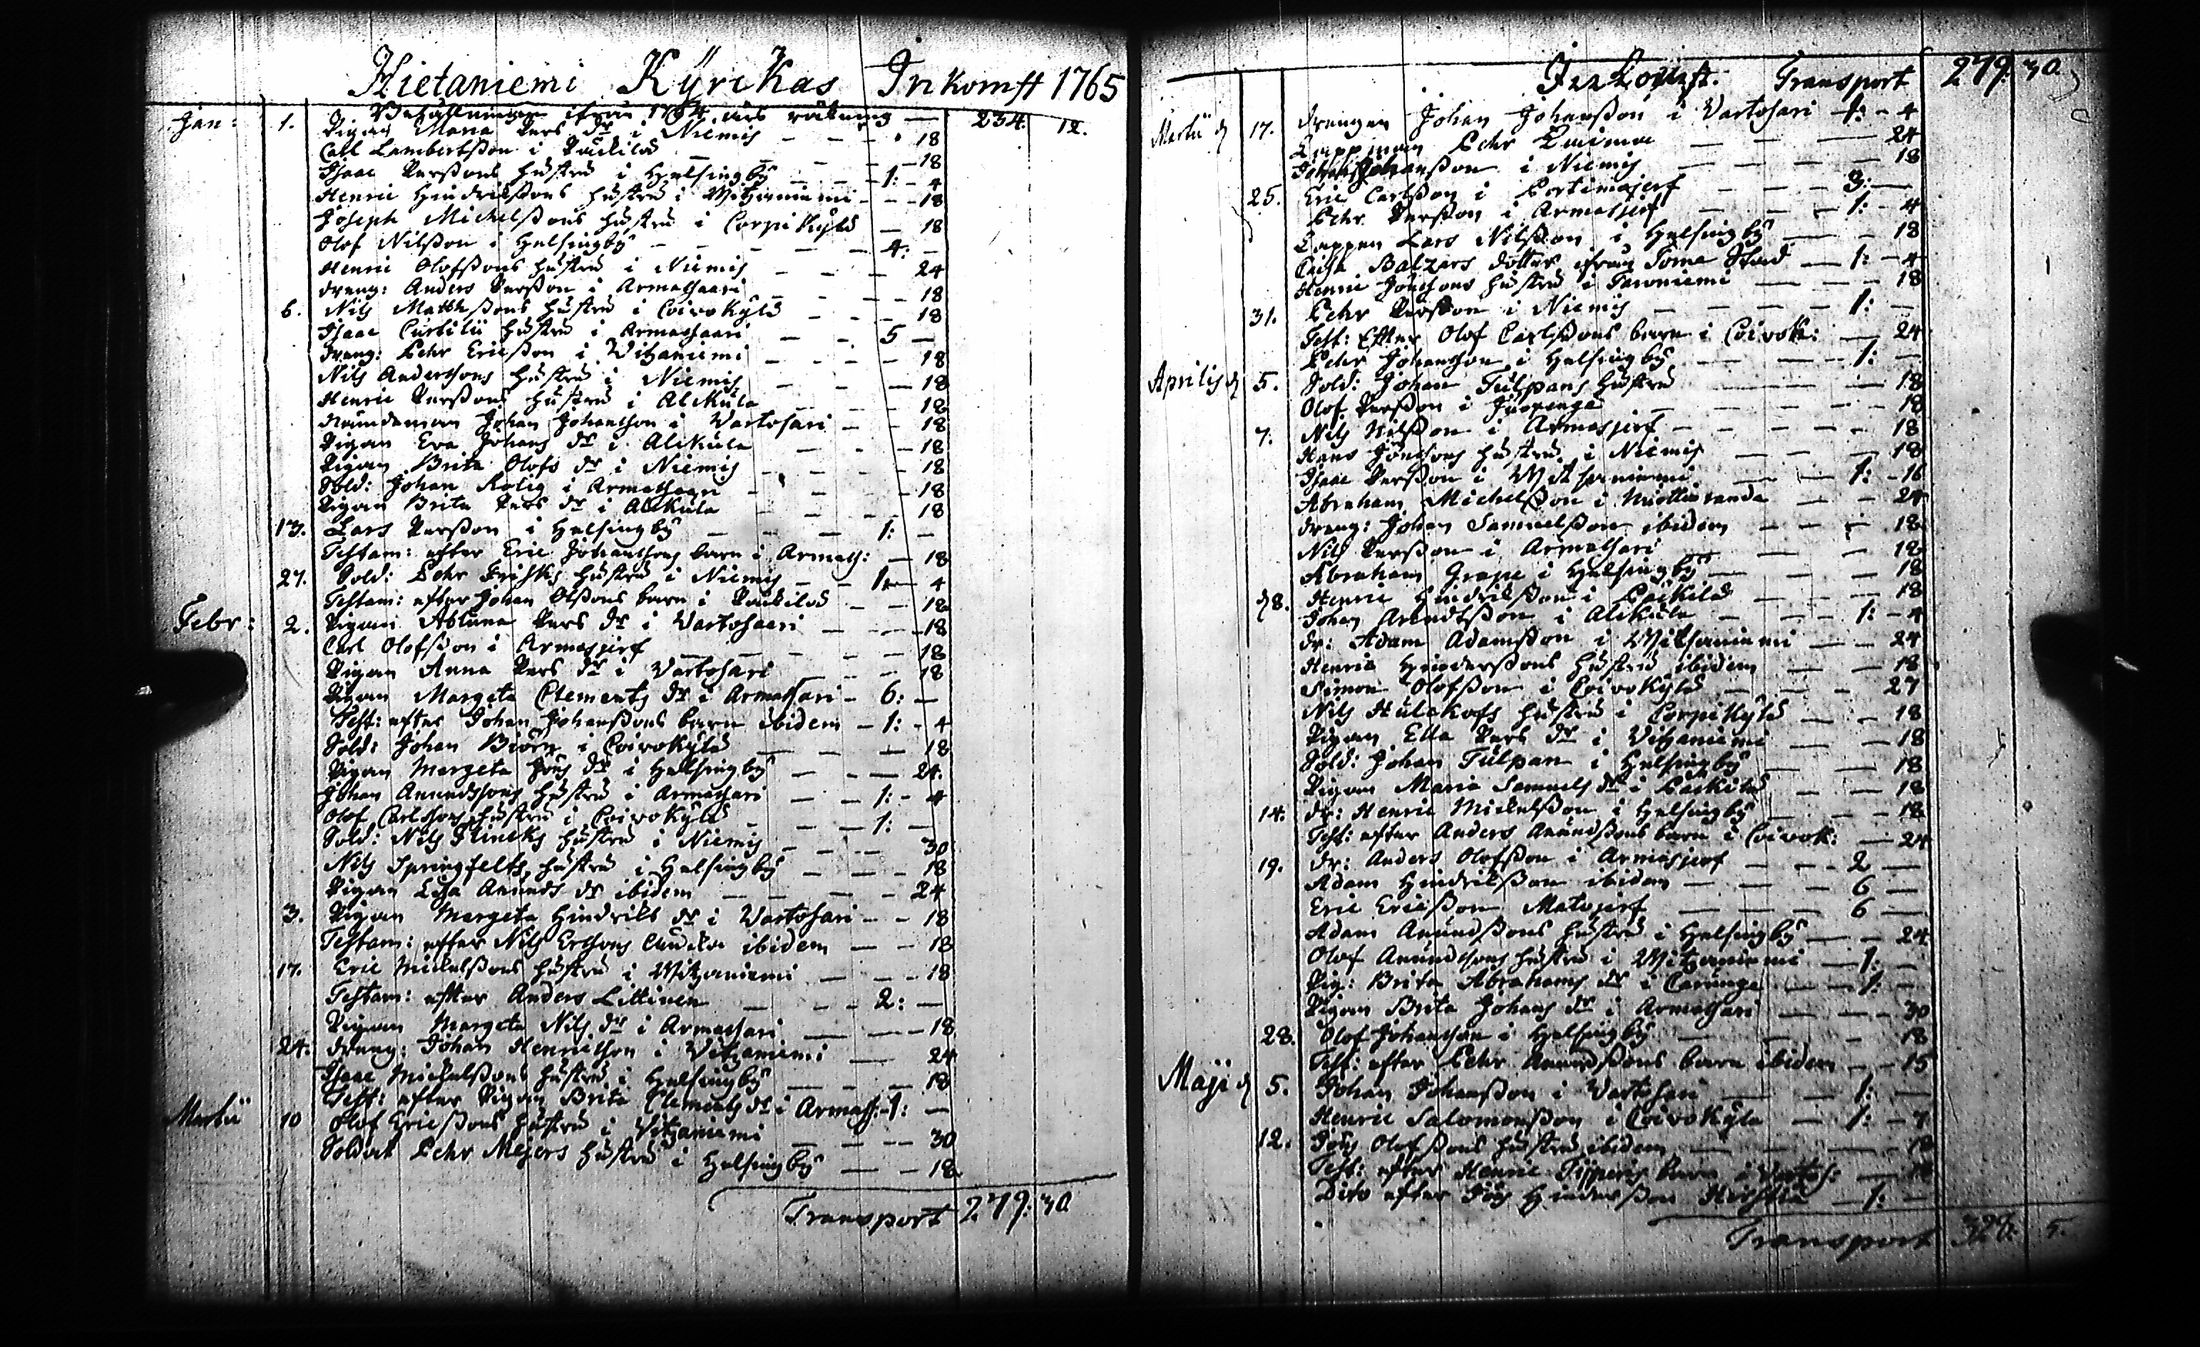 Hietaniemi Kÿrckas Inkomst 1765
Jan: 1. Behållningen ifrån 1764 års räkning — 234. 12.
Pigan Maria Pers dr i Niemis — 18
Carl Lambertsson i — 18
Isaac Perssons hustru i Helsingbÿ — 1: - 4
Henric Hindrikssons hustru i Witzaniemi — 18
Joseph Michelssons hustru i Corpikÿlä — 18
Olof Nilsson i Helsingbÿ — 4: —
Henric Olofssons hustru i Niemis — 24
dreng: Anders Persson i Armassaari — 18
6. Nils Matthssons hustru i Coivokÿlä — 18
Isaac Curtilii hustru i Armassaari — 5 —
dreng: Pehr Ericsson i Vitzaniemi — 18
Nils Anderssons hustru i Niemis — 18
Henric Perssons hustru i Alikula — 18
Nämdeman Johan Johansson i Vartosari — 18
Pigan Eva Johans dr i Alikula — 18
Pigan Brita Olofs dr i Niemis — 18
Sold: Johan Rolig i Armassaari — 18
Pigan Brita Pers dr i Alikula — 18
13. Lars Persson i Helsingbÿ — 1: —
Testam: efter Eric Johanssons barn i Armass: — 18
27. Sold: Pehr Frisks hustru i Niemis — 1: — 4
Testam: efter Johan Olssons barn i — 18
Febr: 2. Pigan Pers dr i Vartosaari — 18
Carl Olofsson i Armasjerf — 18
Pigan Anna Pers dr i Vartosari — 18
Pigan Margeta Clements dr i Armassari — 6: —
Test: efter Johan Johanssons barn ibidem — 1: - 4
Sold: Johan Biörn i Coivokÿlä — 18
Pigan Margeta Jöns dr i Helsingbÿ — 24.
Johan Anundssons hustru i Armassari — 1: - 4
Olof Carlssons hustru i Coivokÿlä — 1: —
Sold: Nils Flincks hustru i Niemis — 30
Nils Springfelts hustru i Helsingbÿ — 18
Pigan Lisa Anunds dr ibidem — 24
3. Pigan Margeta Hindriks dr i Vartosari — 18
Testam: efter Nils Ersons ibidem — 18
17. Eric Mickelssons hustru i Witzaniemi — 18
Testam: efter Anders Littinen — 2: —
Pigan Margeta Nils dr i Armassari — 18
24. dreng: Johan Henricsson i Vitzaniemi — 24
Isaac Michelssons hustru i Helsingbÿ — 18
Test: efter Pigan Brita Clements dr i Armass: 1: —
Martii 10 Olof Ericssons hustru i Vitzaniemi — 30
Soldat Pehr Mejers hustru i Helsingbÿ — 18
Transport 279: 30
Inkomst. Transport 279: 30.
Martii d 17. drengen Johan Johansson i Vartosari 1: - 4
Lappman Pehr — 24
Johan Johansson i Niemis — 18
25. Eric Carlsson i Portimojerf — 3: —
Pehr Persson i Armasjerf — 1: - 4
Lappen Lars Nilsson i Helsingbÿ — 18
Caisa Balzars dotter ifrån Torne Stad — 1: - 4
Henric Jönssons hustru i — 18
31. Pehr Persson i Niemis — 1: —
Test: Efter Olof Carlssons barn i Coivok: — 24
Pehr Johansson i Helsingbÿ — 1: —
Aprilis d 5. Sold: Johan Tulpans hustru — 18
Olof Persson i — 18
7. Nils Nilsson i Armasjerf — 18
Hans Jönssons hustru i Niemis — 18
Isaac Persson i Witsaniemi — 1: - 16
Abraham Michelsson i — 24
dreng: Johan Samuelsson ibidem — 18
Nils Persson i Armassari — 18
Abraham Grape i Helsingbÿ — 18
d 8. Henric Hindriksson i Päckilä — 18
Johan Anundsson i Alikula — 1: - 4
dr: Adam Adamsson i Witsaniemi — 24
Henric Hindersons hustru ibidem — 18
Simon Olofsson i Coivokÿlä — 27
Nils hustru i Corpikÿlä — 18
Pigan Ella Pers dr i Vitzaniemi — 18
Sold: Johan Tulpan i Helsingbÿ — 18
Pigan Maria Samuels dr i Päckilä — 18
14. dr: Henric Mickelsson i Helsingbÿ — 18
Test: efter Anders Anundssons barn i Coivok: — 24
19. dr: Anders Olofsson i Armasjerf — 2 —
Adam Hindriksson ibidem — 6 —
Eric Ericsson Matojerf — 6 —
Adam Anundssons hustru i Helsingbÿ — 24
Olof Anundssons hustru i Witzaniemi — 1: —
Pig: Brita Abrahams dr i Carunge — 1: —
Pigan Brita Johans dr i Armassari — 30
28. Olof Johansson i Helsingbÿ — 18
Test: efter Pehr Anundssons barn ibidem — 15
Maji d 5. Johan Johansson i Vartosari — 1: —
Henric Salomonsson i Coivokÿlä — 1: - 7
12. Jöns Olofssons hustru ibidem — 18
Test: efter Henric barn i Vartos: — 18
Dito efter Jöns Hindersson — 1: —
Transport 328: 5.